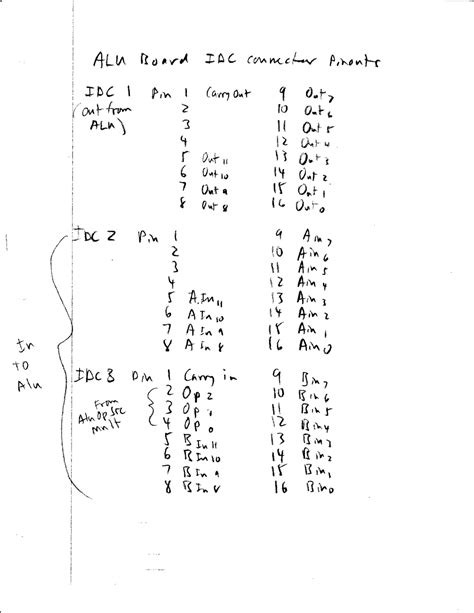 ALU Board IDC connector Pinouts
IDC 1 Pin 1 Carry Out 9 Out 7
(out from 2 10 Out 6
ALU) 3 11 Out 5
4 12 Out 4
5 Out 11 13 Out 3
6 Out 10 14 Out 2
7 Out 9 15 Out 1
8 Out 8 16 Out 0
IDC 2 Pin 1 9 Ain 7
2 10 Ain 6
3 11 Ain 5
4 12 Ain 4
5 A In 11 13 Ain 3
6 A In 10 14 Ain 2
7 A In 9 15 Ain 1
8 A in 8 16 Ain 0
In
To
Alu
IDC 3 Pin 1 Carry in 9 Bin 7
2 Op 2 10 Bin 6
From 3 Op 1 11 Bin 5
Alu Op Src 4 Op 0 12 Bin 4
5 B In 11 13 Bin 3
6 B In 10 14 Bin 2
7 B In 9 15 Bin 1
8 B In 8 16 Bin 0